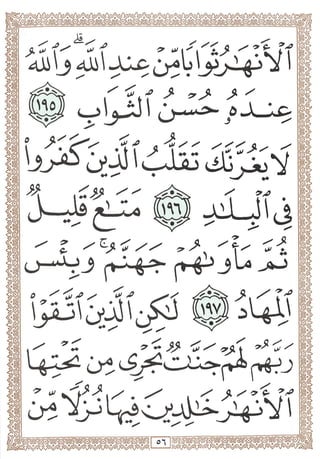 ٱلْأَنْهَٰرُ ثَوَابًا مِّنْ عِندِ ٱللَّهِ ۗ وَٱللَّهُ
عِندَهُۥ حُسْنُ ٱلثَّوَابِ ١٩٥
لَا يَغُرَّنَّكَ تَقَلُّبُ ٱلَّذِينَ كَفَرُوا۟
فِى ٱلْبِلَٰدِ ١٩٦ مَتَٰعٌ قَلِيلٌ
ثُمَّ مَأْوَىٰهُمْ جَهَنَّمُ ۚ وَبِئْسَ
ٱلْمِهَادُ ١٩٧ لَٰكِنِ ٱلَّذِينَ ٱتَّقَوْا۟
رَبَّهُمْ لَهُمْ جَنَّٰتٌ تَجْرِى مِن تَحْتِهَا
ٱلْأَنْهَٰرُ خَٰلِدِينَ فِيهَا نُزُلًا مِّنْ
٥٦